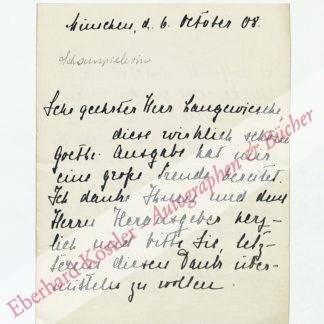 München, d. 6. October 08.
Schauspielerin
Sehr geehrter Herr Langewiesche,
diese wirklich schöne
Goethe-Ausgabe hat mir
eine große Freude bereitet.
Ich danke Ihnen und dem
Herrn Herausgeber herz-
lich und bitte Sie, letz-
terem diesen Dank über-
mitteln zu wollen.
Eberhard Köstler - Autographen & Bücher